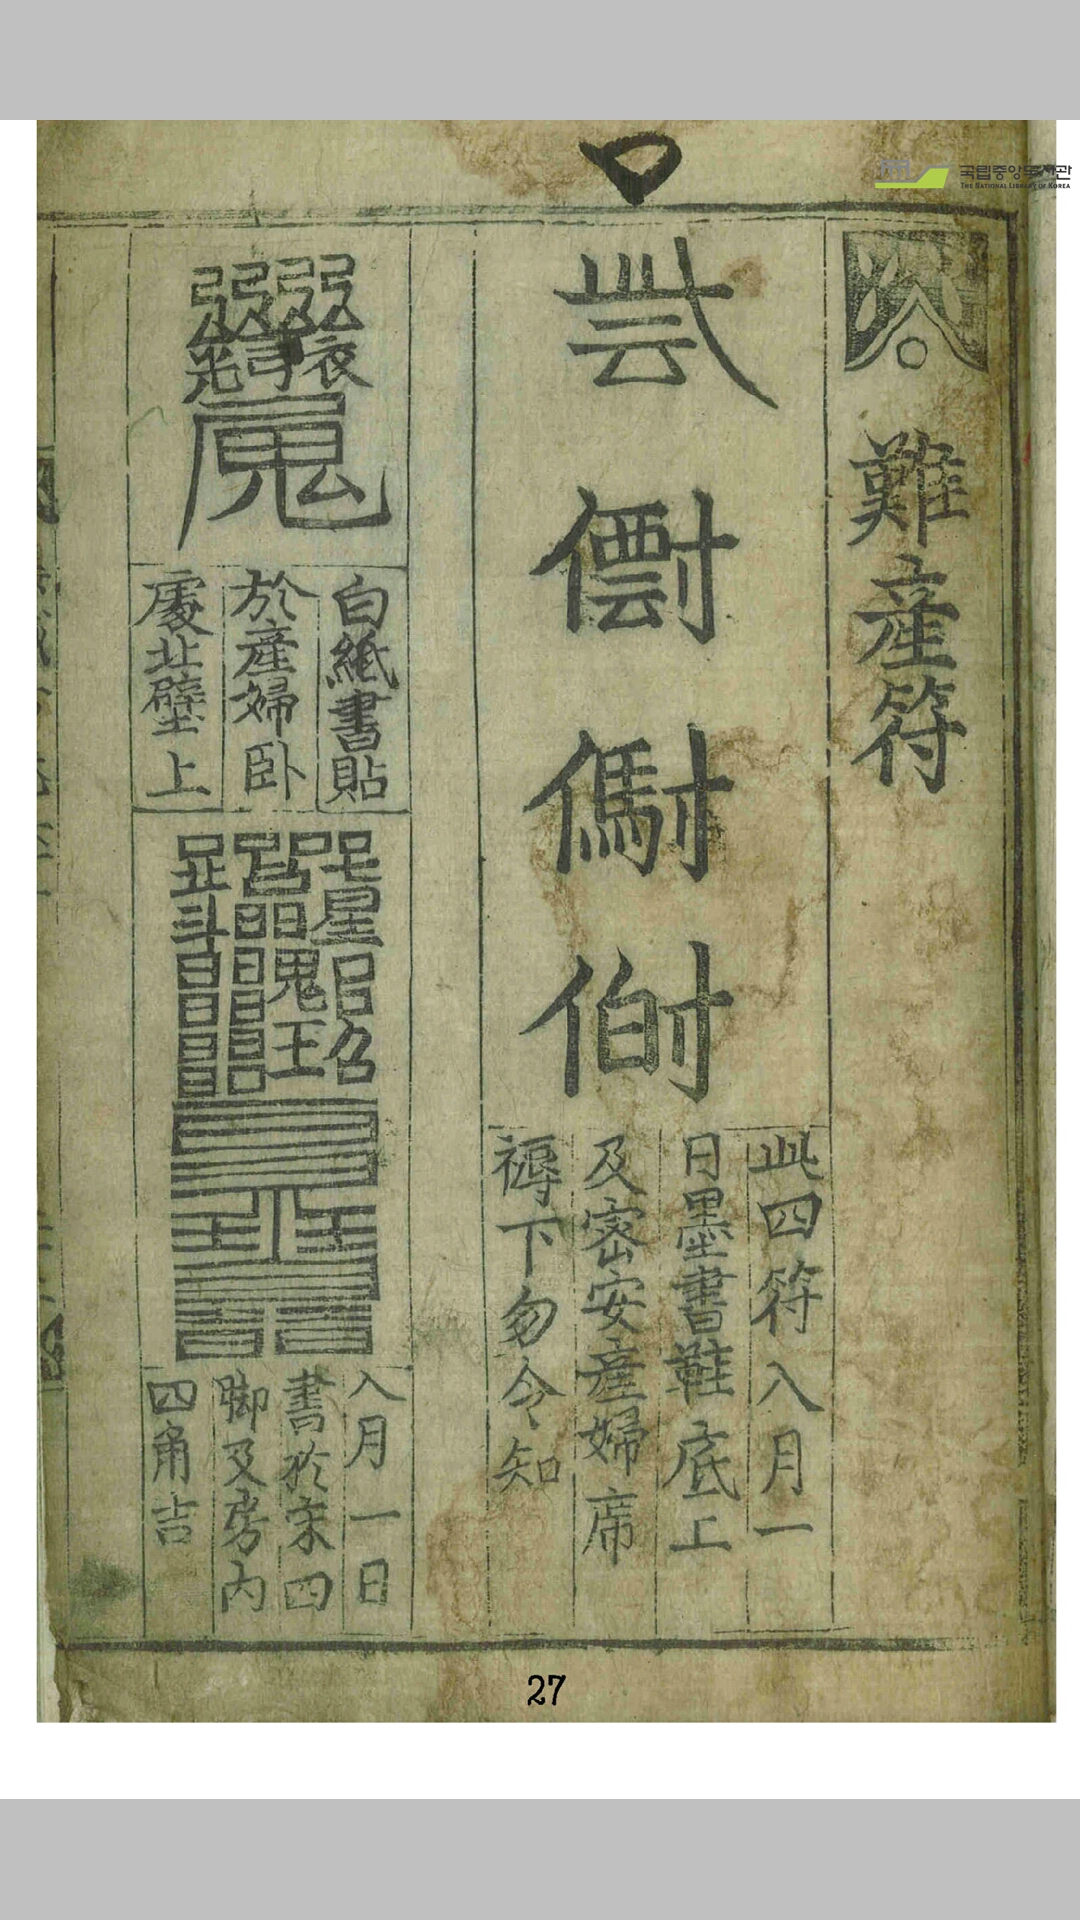 국립중앙도서관
THE NATIONAL LIBRARY OF KOREA
難産符
此四符入月一
日墨書鞋底上
及密安産婦席
褥下勿令知
白紙書貼
於産婦卧
處北壁上
入月一日
書於床四
脚及房内
四角吉
27